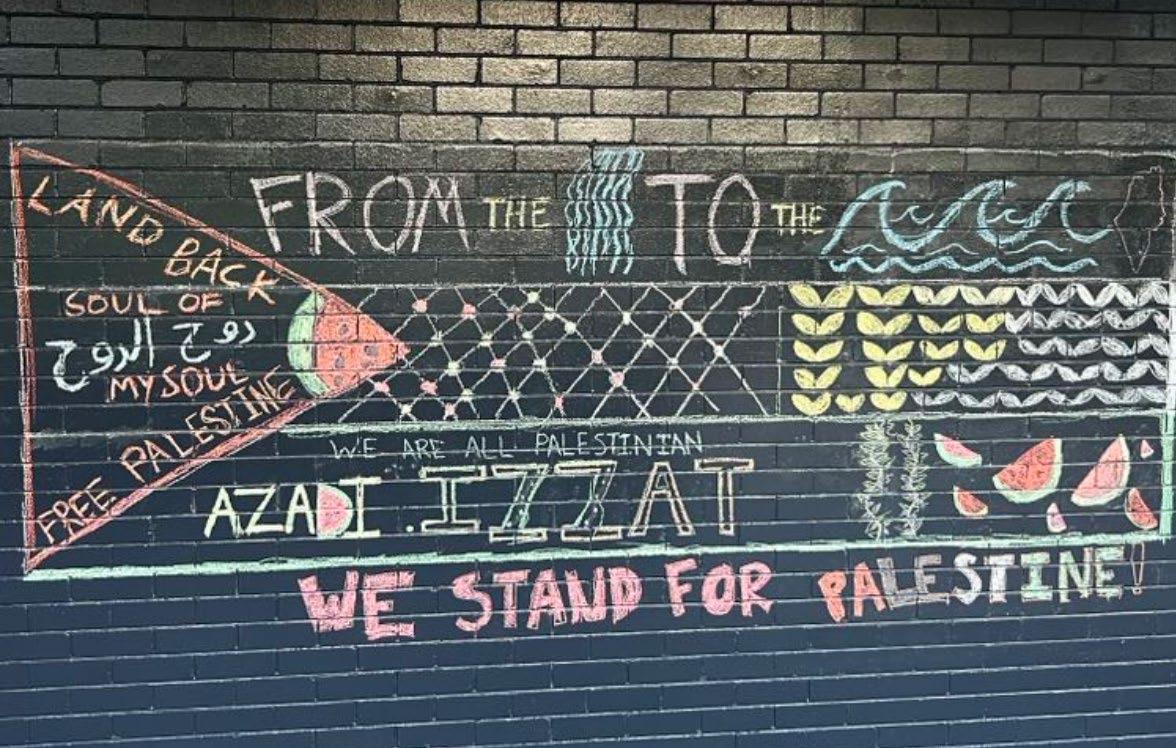 FROM THE TO THE
LAND BACK
SOUL OF
روح الروح
MY SOUL
FREE PALESTINE
WE ARE ALL PALESTINIAN
AZADI . IZZAT
WE STAND FOR PALESTINE!